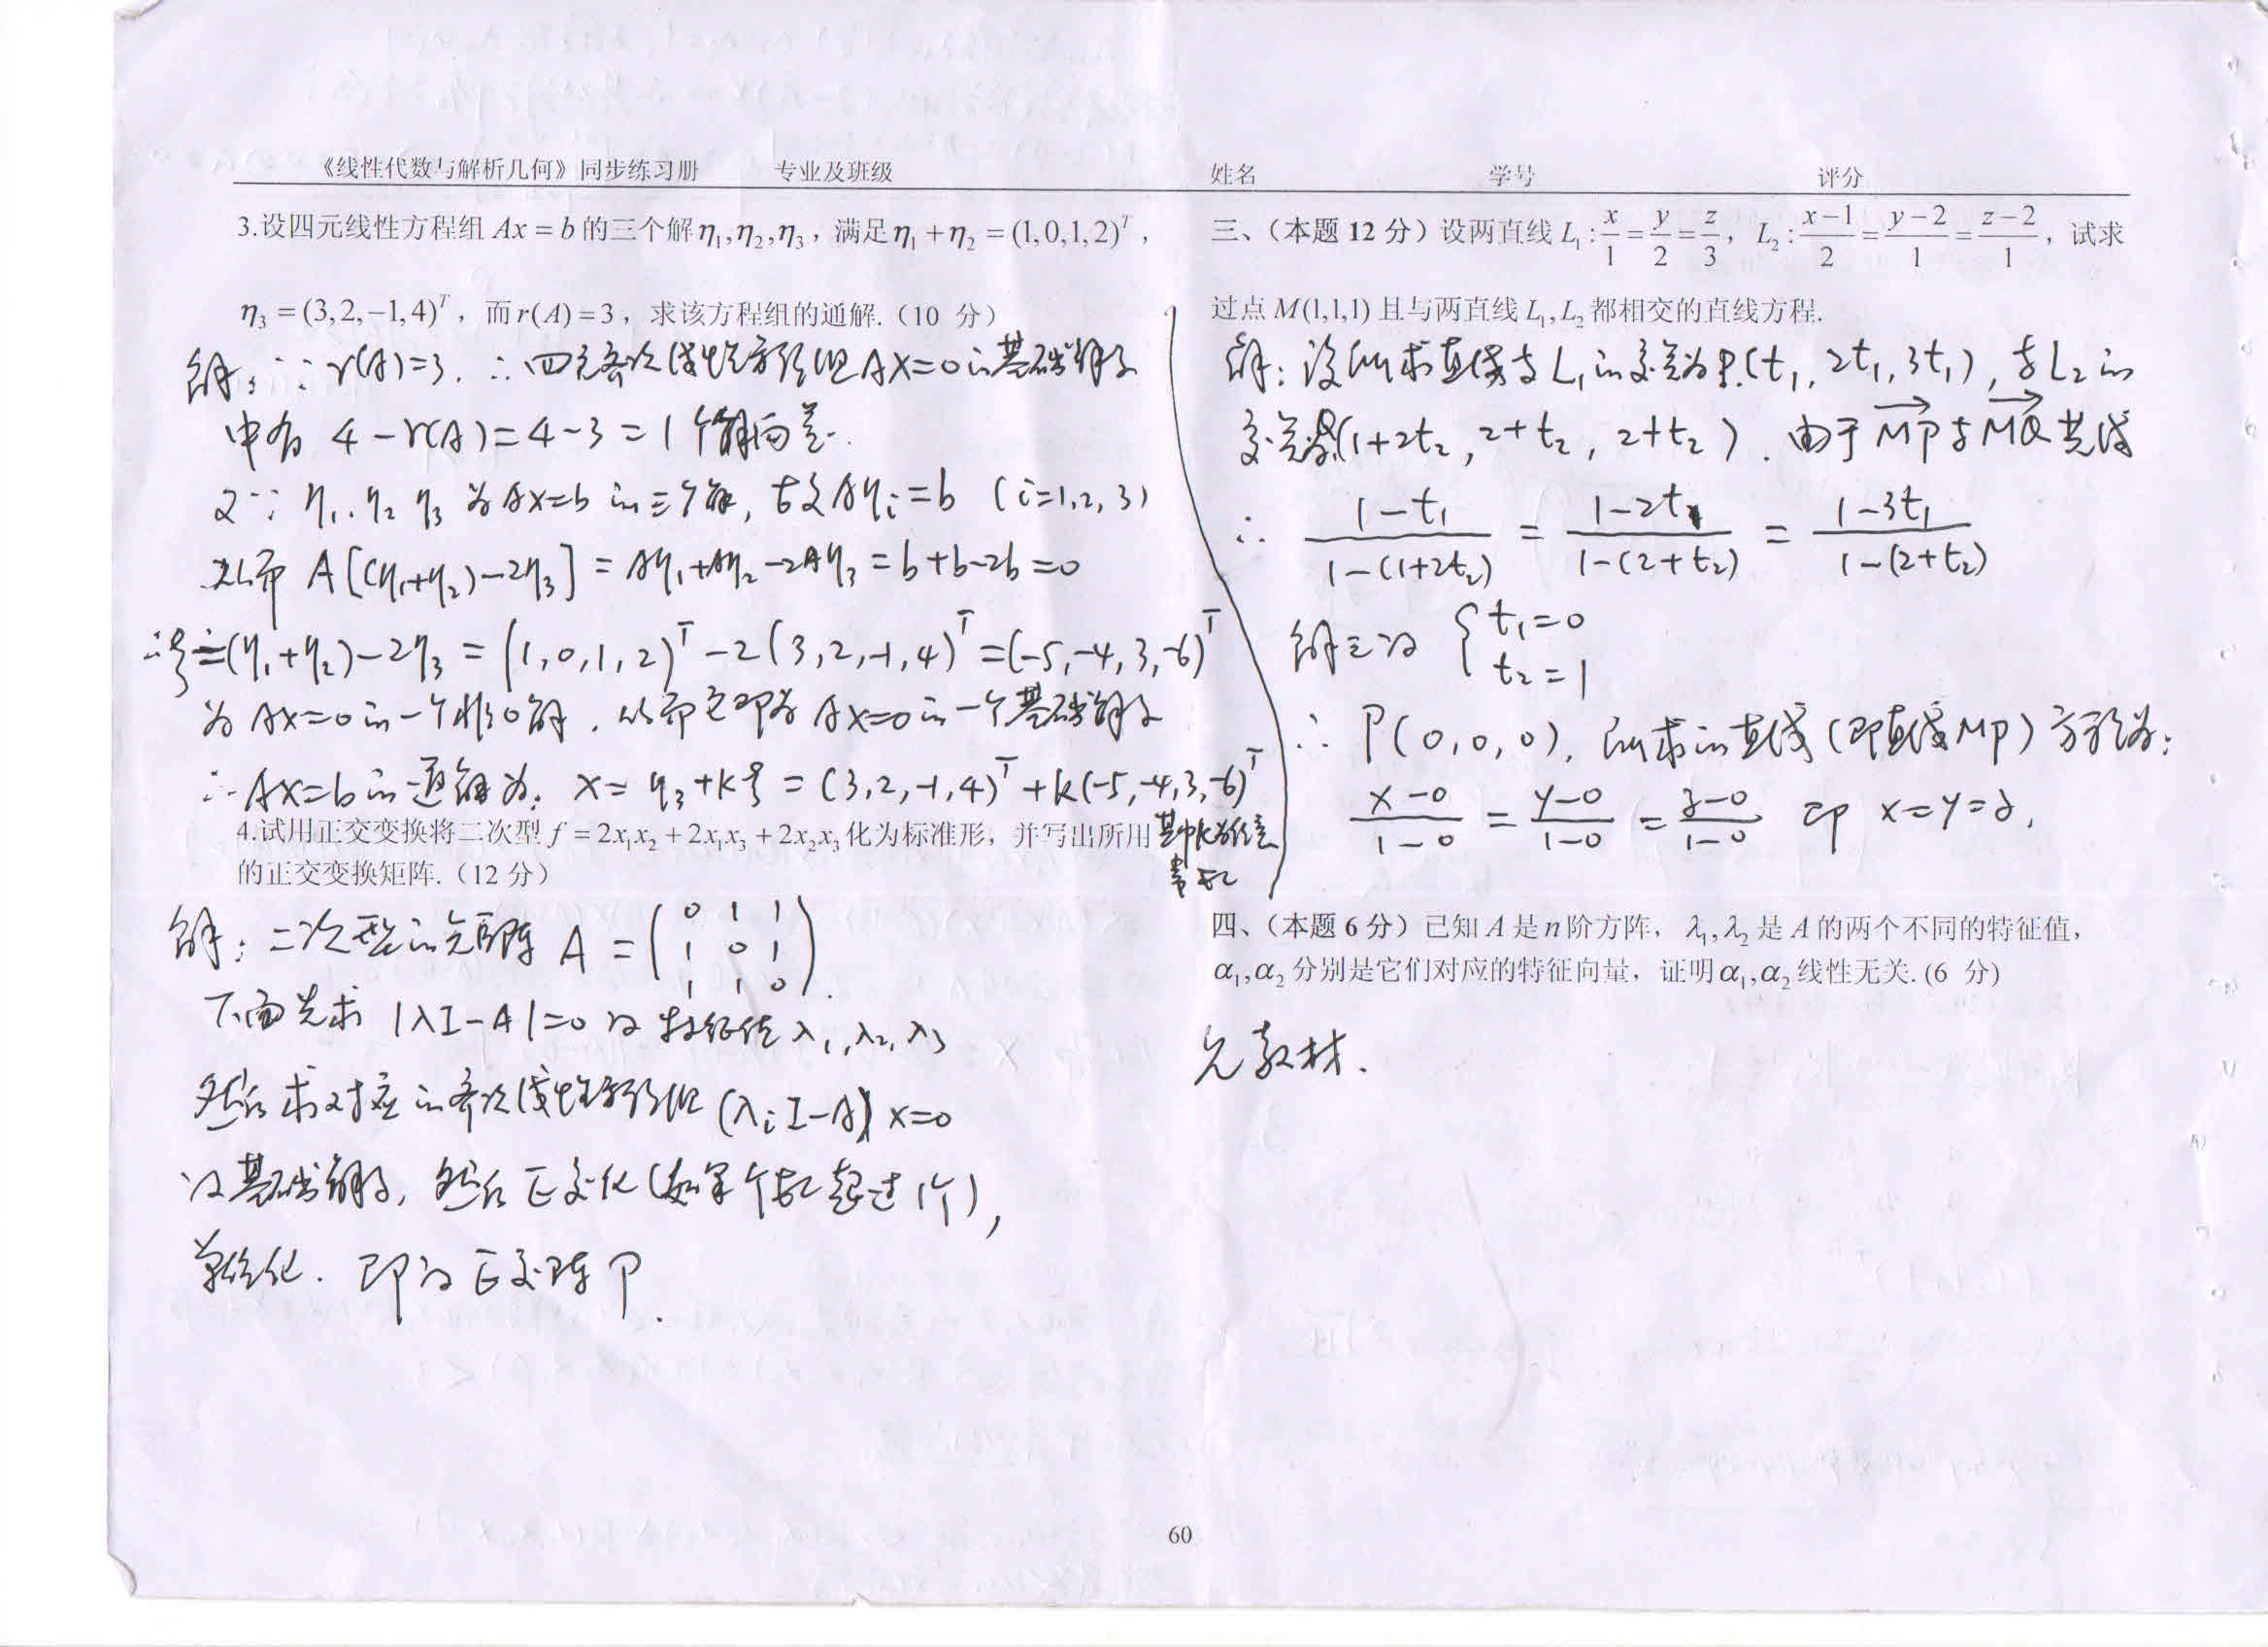 《线性代数与解析几何》同步练习册 专业及班级 姓名 学号 评分
3.设四元线性方程组 Ax = b 的三个解 η₁,η₂,η₃，满足 η₁ + η₂ = (1,0,1,2)ᵀ，
η₃ = (3,2,−1,4)ᵀ，而 r(A) = 3，求该方程组的通解.（10 分）
解：∵ r(A)=3. ∴ 四元齐次线性方程组AX=0的基础解系
中有 4−r(A)=4−3=1个解向量.
又∵ η₁. η₂ η₃ 为AX=b的三个解, 故Aηᵢ=b (i=1,2,3)
从而 A[(η₁+η₂)−2η₃] = Aη₁+Aη₂−2Aη₃ = b+b−2b=0
∴ξ=(η₁+η₂)−2η₃ = (1,0,1,2)ᵀ−2(3,2,−1,4)ᵀ=(−5,−4,3,−6)ᵀ
为AX=0的一个非0解. 从而它即为AX=0的一个基础解系
∴AX=b的通解为: X= η₃+kξ = (3,2,−1,4)ᵀ+k(−5,−4,3,−6)ᵀ
其中k为任意
常数
4.试用正交变换将二次型 f = 2x₁x₂ + 2x₁x₃ + 2x₂x₃ 化为标准形，并写出所用
的正交变换矩阵.（12 分）
解：二次型的矩阵 A =
0 1 1
1 0 1
1 1 0
下面先求 |λI−A|=0 得特征值λ₁,λ₂,λ₃
然后求对应的齐次线性方程组(λᵢI−A)x=0
得基础解系, 然后正交化(如果个数超过1个),
单位化. 即得正交阵P.
三、（本题 12 分）设两直线 L₁ : x/1 = y/2 = z/3，L₂ : (x−1)/2 = (y−2)/1 = (z−2)/1，试求
过点 M(1,1,1) 且与两直线 L₁,L₂ 都相交的直线方程.
解：设所求直线与L₁的交点为P(t₁, 2t₁, 3t₁), 与L₂的
交点(1+2t₂, 2+t₂, 2+t₂). 由于MP与MQ共线
∴ (1−t₁)/(1−(1+2t₂)) = (1−2t₁)/(1−(2+t₂)) = (1−3t₁)/(1−(2+t₂))
解之得 { t₁=0
t₂=1
∴ P(0,0,0), 所求的直线(即直线MP)方程为:
(x−0)/(1−0) = (y−0)/(1−0) = (z−0)/(1−0) 即 x=y=z.
四、（本题 6 分）已知 A 是 n 阶方阵，λ₁,λ₂ 是 A 的两个不同的特征值，
α₁,α₂ 分别是它们对应的特征向量，证明 α₁,α₂ 线性无关.(6 分)
见教材.
60